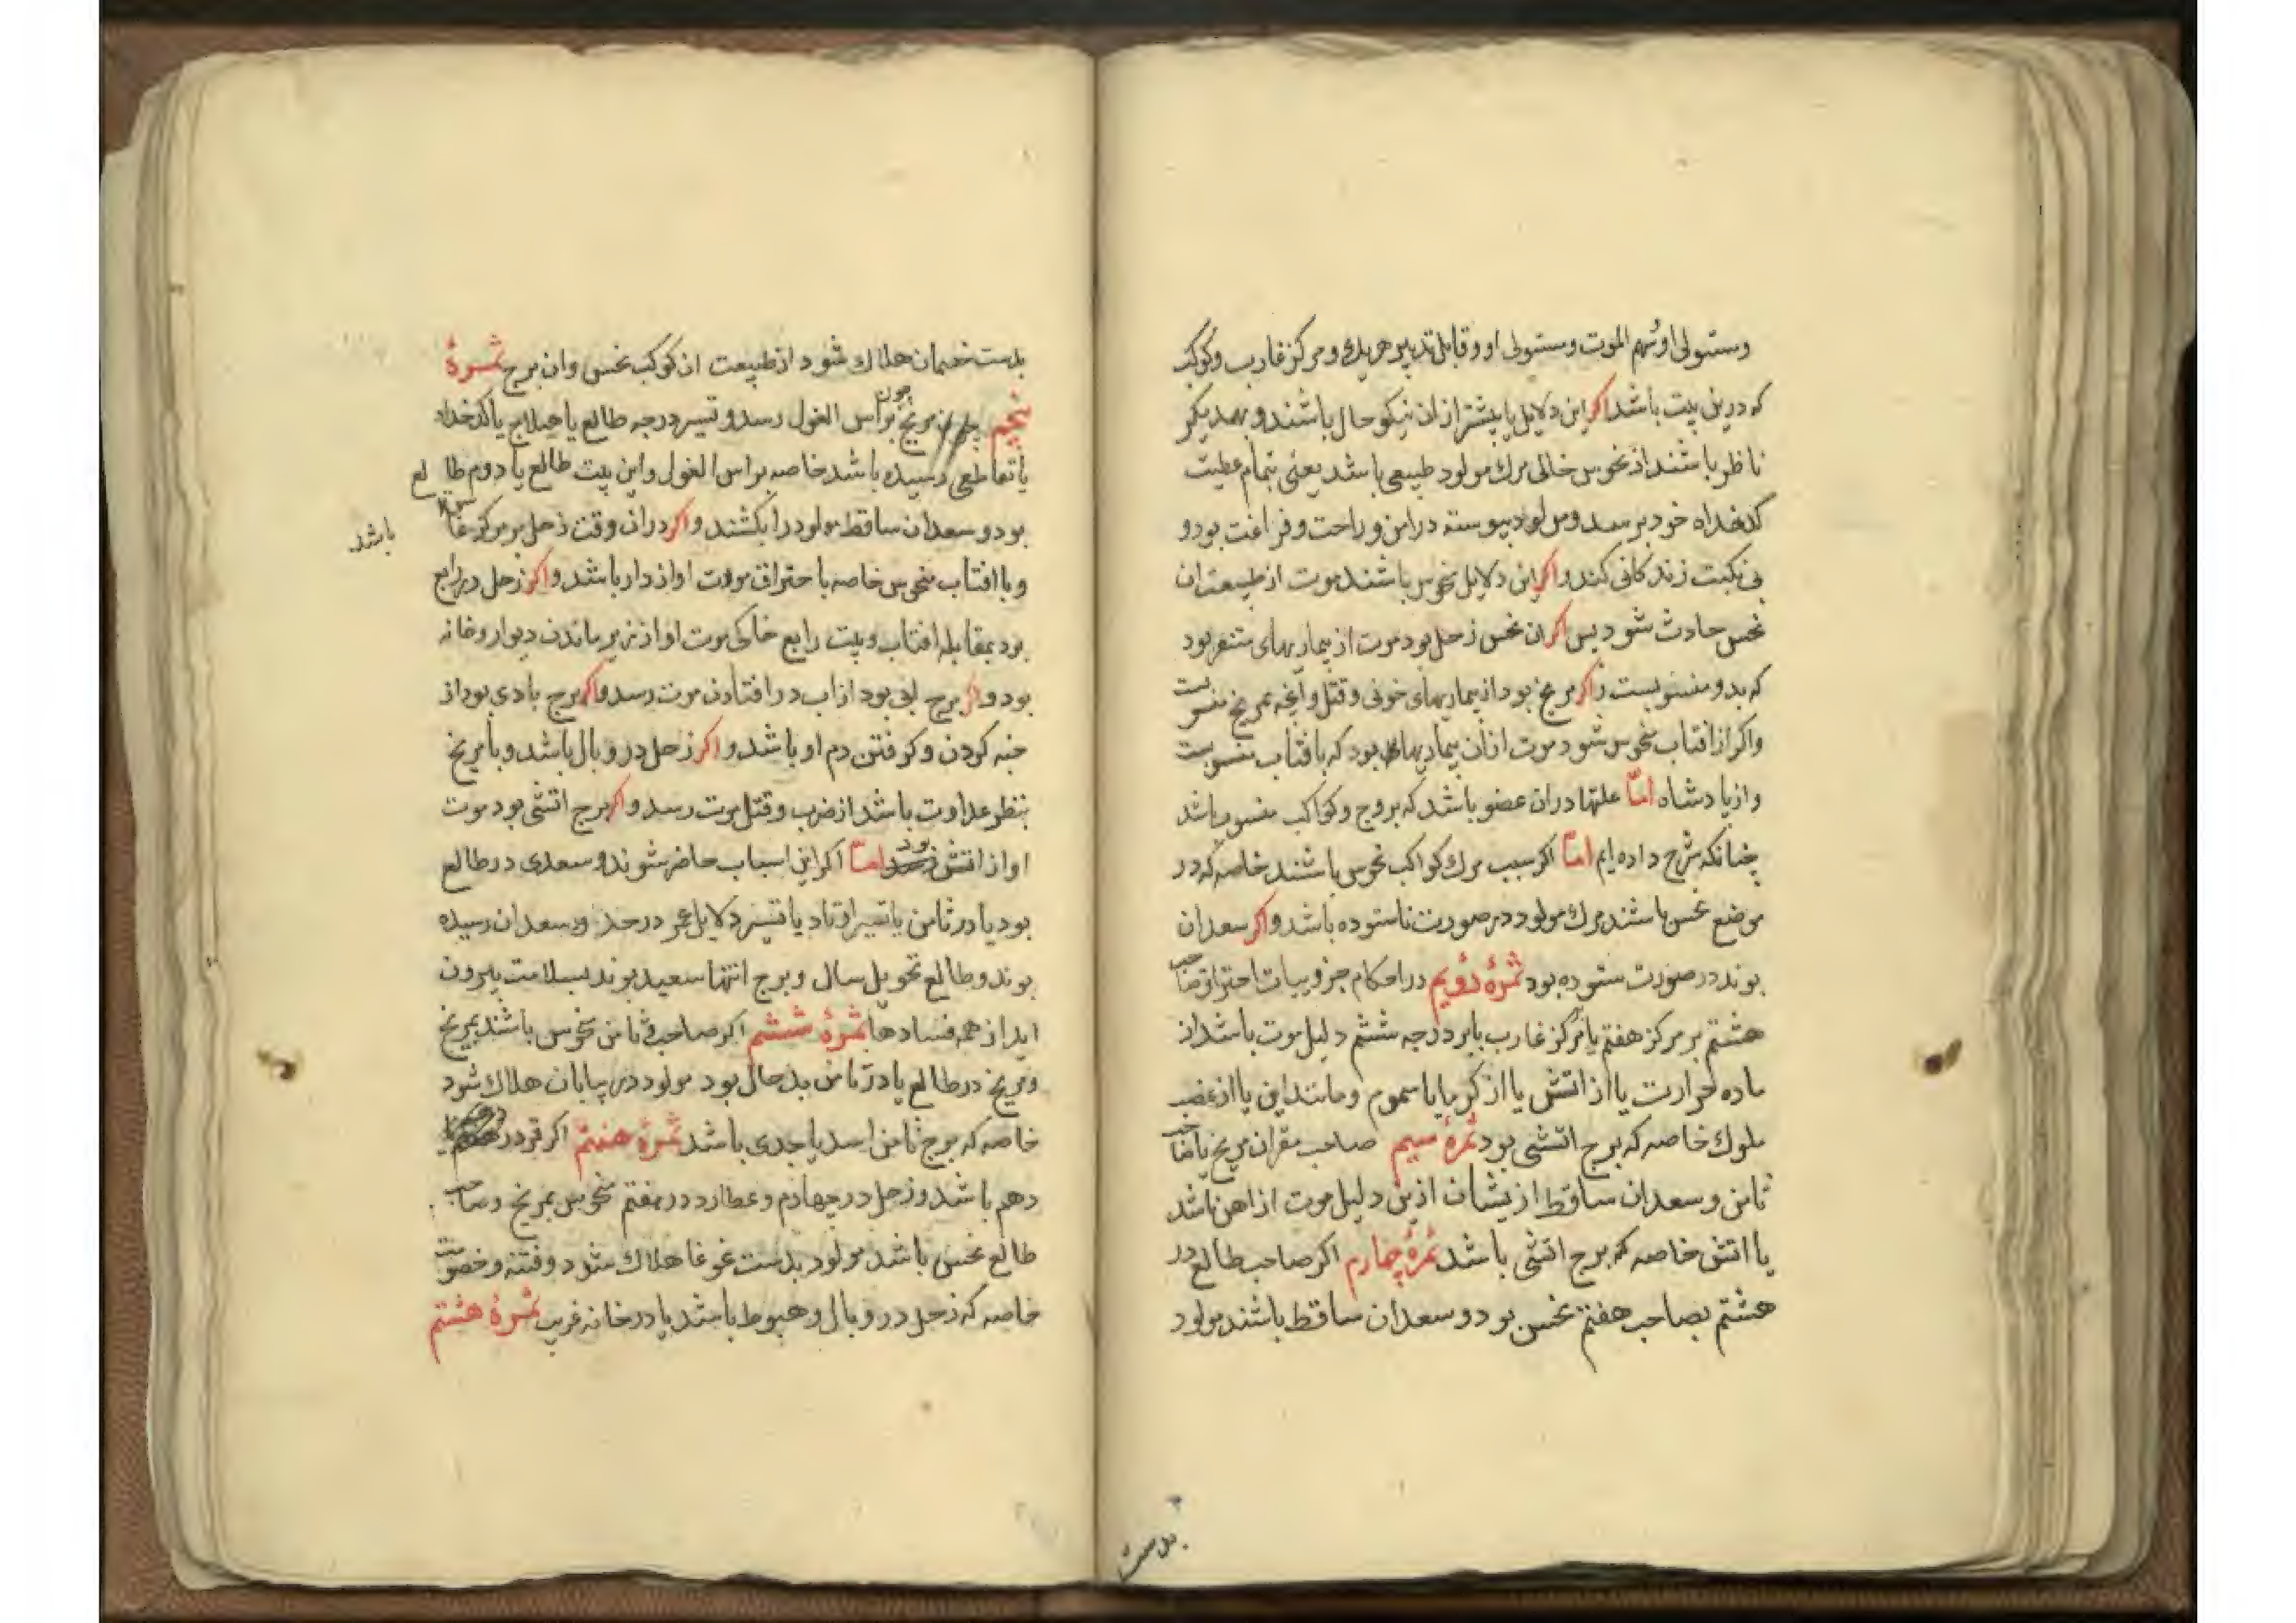 ومستولی او وسهم الموت ومستولی او وقابل تدبیر هریک ومرکز غارب وکوکب
که درین بیت باشد اکر این دلایل یا بیشتر ازان نیکو حال باشند وبهمدیکر
ناظر باشند از نحوس خالی مرك مولود طبیعی باشد یعنی بتمام عطیت
کدخداه خود برسد ومولود پیوسته در امن وراحت وفراغت بود و
بی نکبت زندکانی کند واکر این دلایل نحوس باشند موت از طبیعت ان
نحس حادث شود پس اکر ان نحس زحل بود موت از بیماریهای بود
که بدو منسوبست واکر مریخ بود از بیماریهای خونی وقتل وآنچه بمریخ منسوبست
واکر از افتاب منحوس شود موت از ان بیماریها بود که بافتاب منسوبست
واز پادشاه اما علتها دران عضو باشد که بروج وکواکب منسوب باشد
چنانکه شرح داده ایم اما اکر سبب مرك کواکب نحوس باشند خاصه که در
موضع نحس باشند مرك مولود در صورت ناستوده باشد واکر سعدان
بوند در صورت ستوده بود ثمرهٔ دویم در احکام جزویات احتراق صاحب
هشتم بر مرکز هفتم یا مرکز غارب یا بر درجه ششم دلیل موت باشد از
ماده حرارت یا از اتش یا از کرما یا سموم ومانند این یا از غضب
ملوك خاصه که برج اتشی بود ثمرهٔ سیم صاحب مقران مریخ یا صاحب
ثامن وسعدان ساقط از یشان ازین دلیل موت از اهن باشد
یا اتش خاصه که برج اتشی باشد ثمرهٔ چهارم اکر صاحب طالع در
هشتم بصاحب هفتم نحس بود وسعدان ساقط باشند مولود
بدست
بدست خصمان هلاك شود از طبیعت ان کوکب نحس وان برج ثمرهٔ
پنجم چون مریخ براس الغول رسد وتسییر درجه طالع یا هیلاج یا کدخداه
یا تقاطعی رسیده باشد خاصه براس الغول واین بیت طالع یا دوم طالع
بود وسعدان ساقط مولود را بکشند واکر دران وقت زحل بر مرکز باشد
وبا افتاب منحوس خاصه با احتراق موت او از دار باشد واکر زحل در رابع
بود بمقابله افتاب وبیت رابع خاکی موت او از زیر ماندن دیوار وخانه
بود واکر برج ابی بود از اب در افتادن موت رسد واکر برج بادی بود از
خبه کردن وکرفتن دم او باشد واکر زحل در وبال باشد وبا مریخ
بنظر عداوت باشد از ضرب وقتل موت رسد واکر برج اتشی بود موت
او از اتش بود اما اکر این اسباب حاضر شوند وسعدی در طالع
بود یا در ثامن یا تسییر اوتاد یا تسییر دلایل عمر در حد وسعدان رسیده
بوند وطالع تحویل سال وبرج انتها سعید بوند بسلامت بیرون
اید از همه فسادها ثمرهٔ ششم اکر صاحب ثامن منحوس باشند بمریخ
ومریخ در طالع یا در ثامن بد حال بود مولود در بیابان هلاك شود
خاصه که برج ثامن اسد یا جدی باشد ثمرهٔ هفتم اکر قمر در
دهم باشد وزحل در چهارم وعطارد در هفتم منحوس بمریخ وصاحب
طالع نحس باشد مولود بدست غوغا هلاك شود وفتنه وخصومت
خاصه که زحل در وبال وهبوط باشد یا در خانه غریب ثمرهٔ هشتم